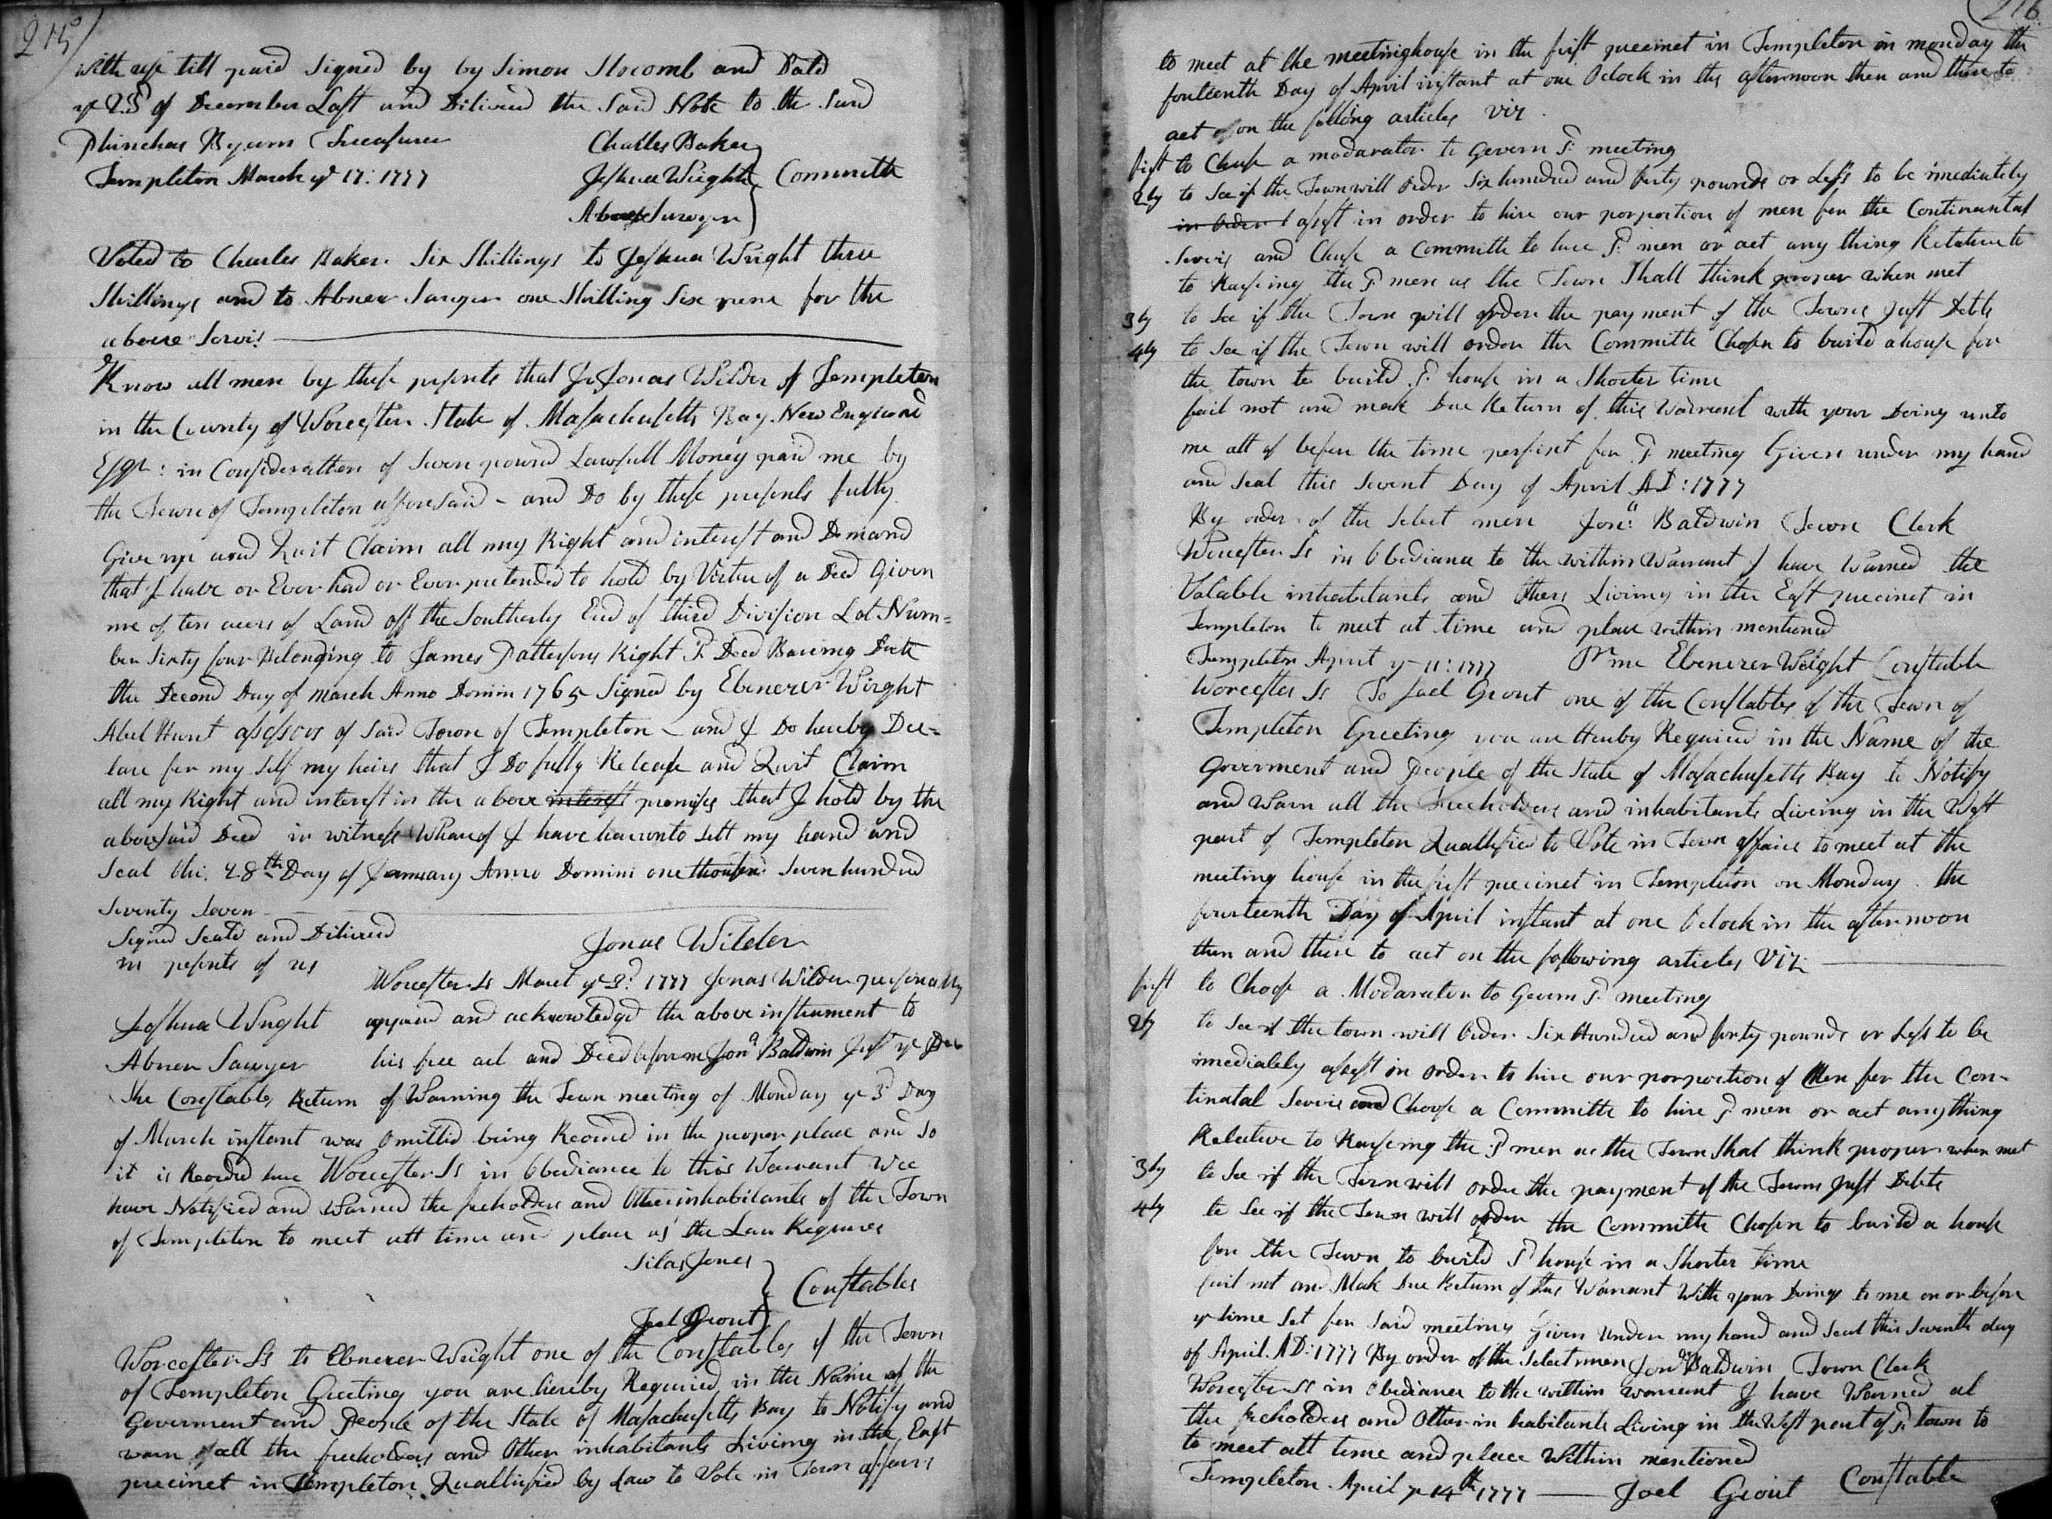 215
with use till paid Signed by by Simon Slocomb and Datd
ye 23d of December Last and Dilivred the Said Note to the Said
Phinehas Byam Treasurer Charles Baker
Templeton March ye 17: 1777 Joshua Wright Committe
Abner Sawyer
Voted to Charles Baker Six Shillings to Joshua Wright three
Shillings and to Abner Sawyer one Shilling Six pence for the
above Servis
Know all men by these presents that I Jonas Wilder of Templeton
in the County of Worcester State of Masachusetts Bay New England
Esqr: in Consideration of Seven pound Lawfull Money paid me by
the Town of Templeton afforesaid - and Do by these presents fully
Give up and Quit Claim all my Right and interest and Demand
that I have or Ever had or Ever pretended to hold by Virtue of a Deed Given
me of ten acers of Land off the Southerly End of third Division Lot Num=
ber Sixty four Belonging to James Pattersons Right Sd Deed Baring Date
the Second Day of march Anno Domini 1765 Signed by Ebenezer Wright
Abel Hunt assessors of Said Town of Templeton - and I Do hereby Dec=
lare for my self my heirs that I Do fully Release and Quit Claim
all my Right and interest in the above interest premises that I hold by the
abovesaid Deed in witness Whareof I have hereunto Sett my hand and
Seal this 28th Day of January Anno Domini one thousand Seven hundred
Seventy Seven
Signed Seald and Dilivred Jonas Wilder
in presents of us
Worcester Ss March ye 3d 1777 Jonas Wilder personally
Joshua Wright appeared and acknowledged the above instrument to
Abner Sawyer his free act and Deed before me Jona Baldwin Just
The Constables Return of Warning the Town meeting of Monday ye 3d Day
of March instant was omitted being Recored in the proper place and so
it is Recored here Worcester Ss in Obediance to this Warrant wee
have Notified and Warned the freeholders and Other inhabitants of the Town
of Templeton to meet att time and place as the Law Requires
Silas Jones
Joel Grout Constables
Worcester Ss to Ebenezer Wright one of the Constables of the Town
of Templeton Greeting you are hereby Required in the Name of the
Goverment and People of the State of Masachusetts Bay to Notify and
warn all the freeholders and Other inhabitants Liveing in the East
precinct in Templeton Quallified by Law to Vote in Town affairs
216
to meet at the meetinghouse in the first precinct in Templeton in monday the
fouteenth Day of April instant at one Oclock in the afternoon then and thire to
act on the folling articles viz
first to Chuse a modarator to Govern Sd meeting
2ly to See if the Town will Order Six hundred and forty pounds or Less to be imediately
in Order assest in order to hire our porportion of men for the Continantal
Servis and Chuse a Committe to hire Sd men or act any thing Relative to
to Raiseing the Sd men as the Town Shall think proper when met
3ly to See if the Town will order the payment of the Towns Just Debts
4ly to See if the Town will order the Committe Chosen to build a house for
the town to build Sd house in a Shorter time
fail not and mak Due Return of this Warrant with your Doing unto
me att of before the time perfixt for Sd meeting Given under my hand
and Seal this Sevent Day of April AD: 1777
By order of the Select men Jona Baldwin Town Clerk
Worcester Ss in Obediance to the within Warrant I have Warned the
Valable inhabitants and Others Liveing in the East precinct in
Templeton to meet at time and place within mentioned
Templeton April ye 11: 1777 Pr me Ebenezer Wright Constable
Worcester Ss To Joel Grout one of the Constables of the Town of
Templeton Greeting you are Hereby Required in the Name of the
Goverment and People of the State of Masachusetts Bay to Notify
and Warn all the Freeholders and inhabitants Liveing in the West
part of Templeton Quallified to Vote in Town affairs to meet at the
meeting house in the first precinct in Templeton on Monday the
fourteenth Day of April instant at one Oclock in the afternoon
then and there to act on the following articles viz
first to Choose a Modarator to Govern Sd meeting
2ly to See if the town will Order Six Hundred and forty pounds or Less to be
imediately assest in order to hire our porportion of Men for the Con-
tinatal Servis and Choose a Committe to hire Sd men or act any thing
Relative to Raiseing the Sd men as the Town Shal think proper when met
3ly to See if the Town will order the payment of the Towns Just Debts
4ly to See if the Town will order the Committe Chosen to build a house
for the Town to build Sd house in a Shorter time
fail not and Mak Due Return of this Warrant With your Doings to me on or before
ye time Set for Said meeting Given under my hand and Seal this Seventh day
of April AD: 1777 By order of the Selectmen Jona Baldwin Town Clerk
Worcester Ss in Obediance to the within warrant I have Warned al
the freholders and Other inhabitants Liveing in the West part of Sd town to
to meet att time and place Within mentioned
Templeton April ye 14th 1777 Joel Grout Constable